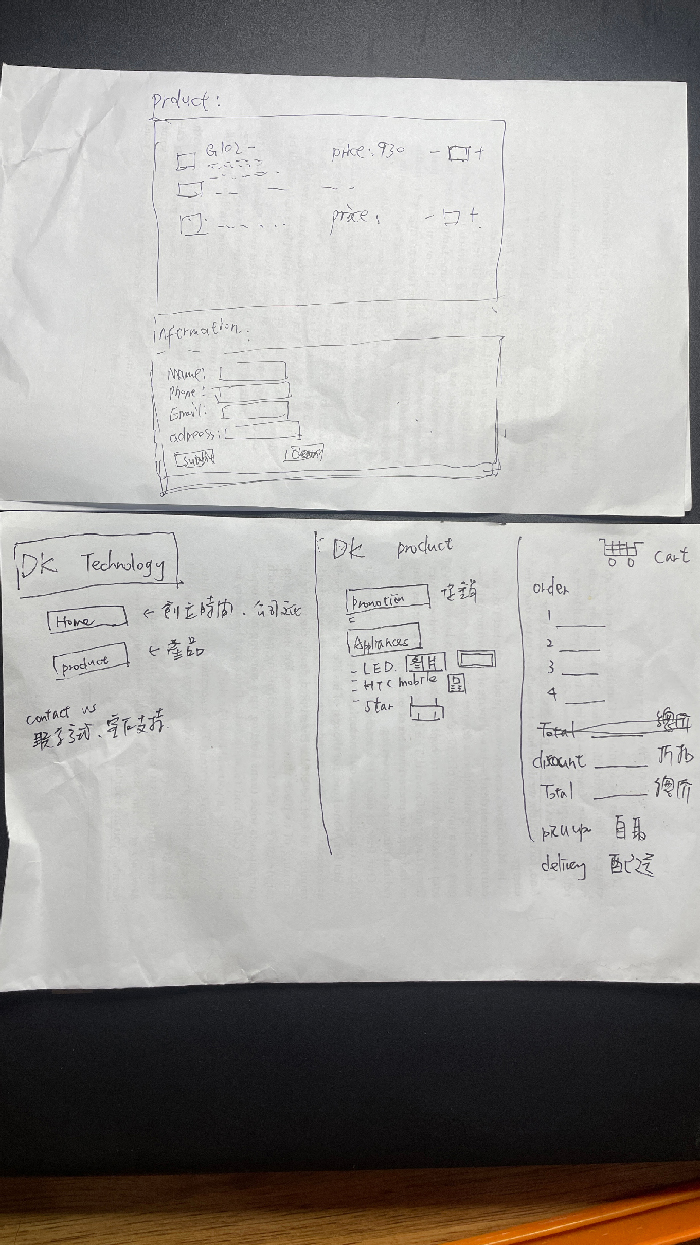 Prduct:
G102 -
price: 930 - +
price. - +
Information:
Name:
Phone:
Email:
adress:
Submit
DK Technology
Home ← 創立時間、公司文化
product ← 產品
contact us
DK product
Promotion 促銷
Appliances
- LED. 圖片
- HTC mobile
- Star
Cart
order
1
2
3
4
Total 總价
discount 折扣
Total 總价
pick up 自取
delivery 配送